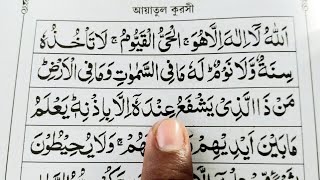 আয়াতুল কুরসী
اَللّٰهُ لَآ اِلٰهَ اِلَّا هُوَ ۚ اَلْحَیُّ الْقَیُّوْمُ ۚ لَا تَاْخُذُهٗ
سِنَةٌ وَّلَا نَوْمٌ ؕ لَهٗ مَا فِی السَّمٰوٰتِ وَمَا فِی الْاَرْضِ ؕ
مَنْ ذَا الَّذِیْ یَشْفَعُ عِنْدَهٗٓ اِلَّا بِاِذْنِهٖ ؕ یَعْلَمُ
مَا بَیْنَ اَیْدِیْهِمْ هُمْ ۚ وَلَا یُحِیْطُوْنَ